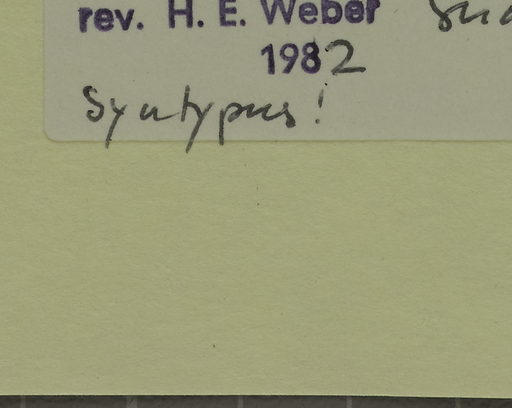 rev. H. E. Weber
1982
Syntypus!